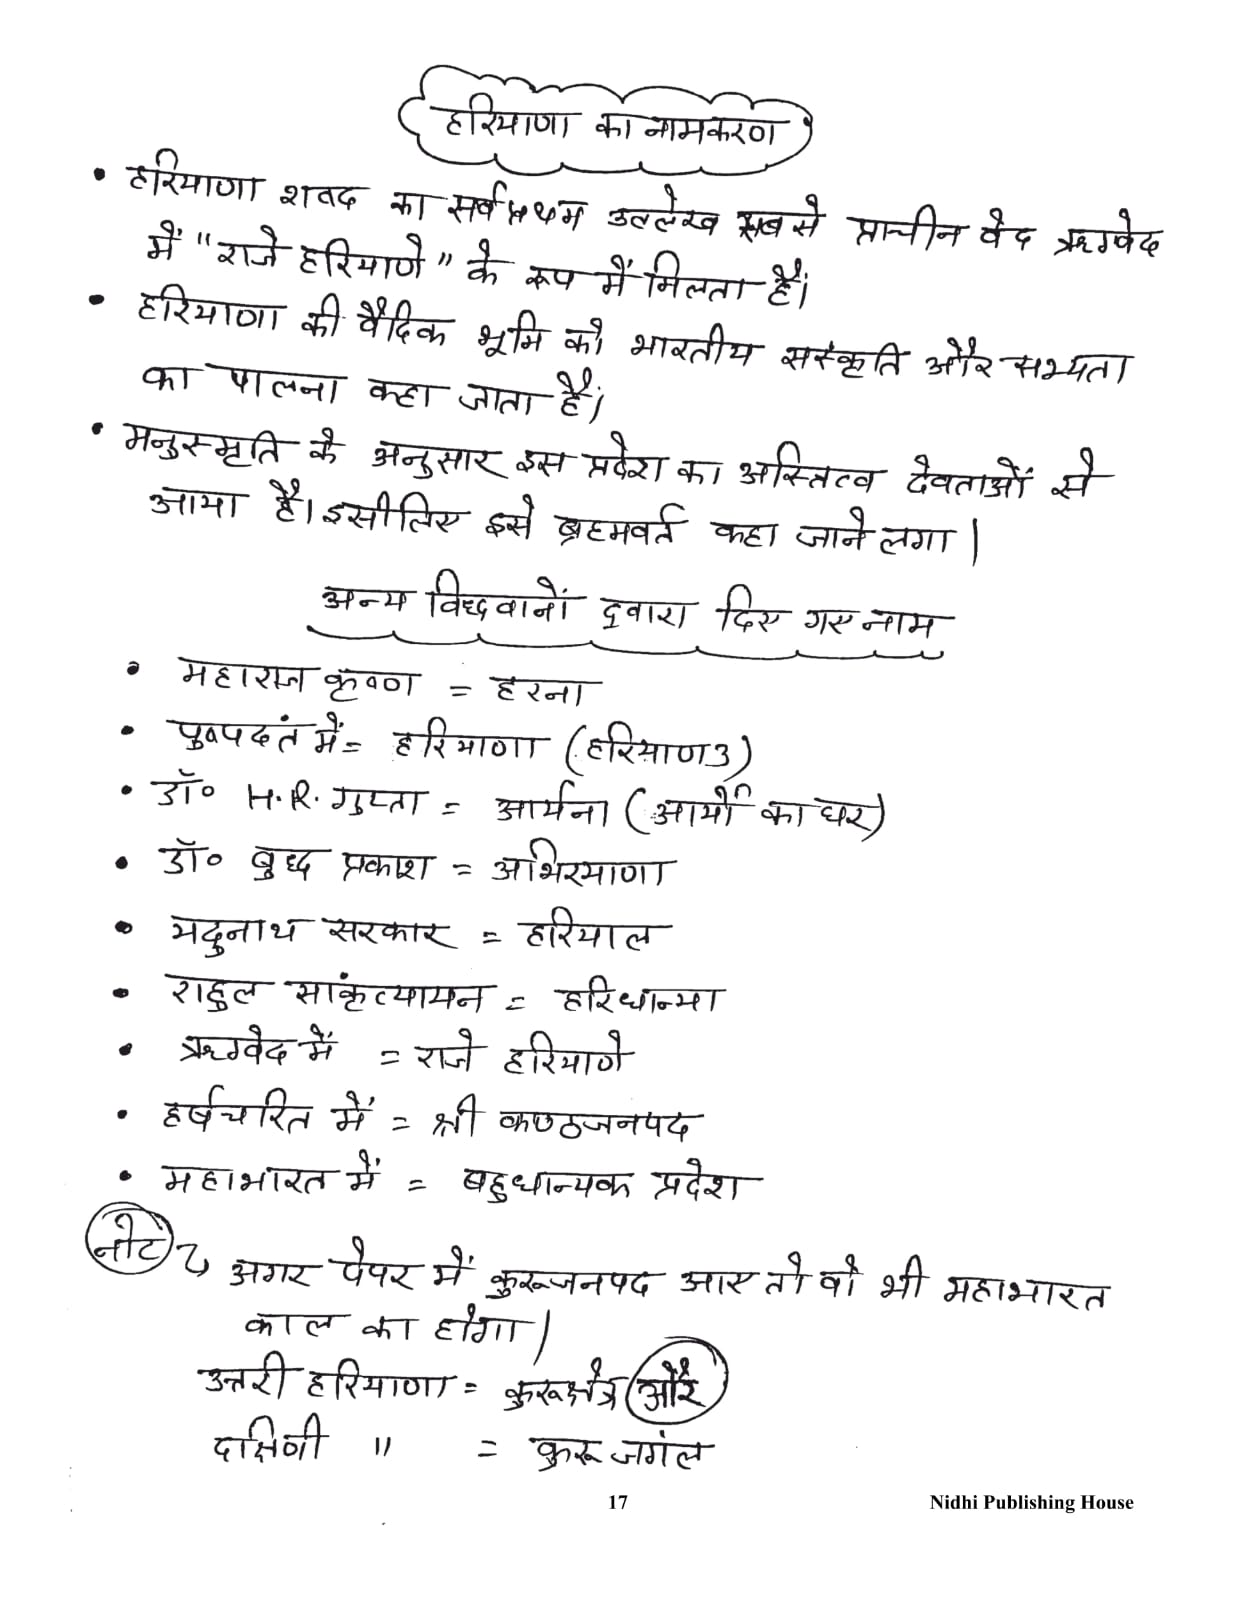 हरियाणा का नामकरण
• हरियाणा शवद का सर्वप्रथम उल्लेख सबसे प्राचीन वेद ऋग्वेद
में "राजे हरियाणे" के रूप में मिलता है।
• हरियाणा की वैदिक भूमि को भारतीय संस्कृति और सभ्यता
का पालना कहा जाता है।
• मनुस्मृति के अनुसार इस प्रदेश का अस्तित्व देवताओं से
आया है। इसीलिए इसे ब्रहमवर्त कहा जाने लगा।
अन्य विद्धवानों द्वारा दिए गए नाम
• महाराज कृष्ण = हरना
• पुष्पदंत में = हरियाणा (हरियाणउ)
• डॉ॰ H.R. गुप्ता = आर्यना (आर्यों का घर)
• डॉ॰ बुद्ध प्रकाश = अभिरयाणा
• यदुनाथ सरकार = हरियाल
• राहुल सांकृत्यायन = हरिधान्या
• ऋग्वेद में = राजे हरियाणे
• हर्षचरित में = श्री कण्ठजनपद
• महाभारत में = बहुधान्यक प्रदेश
नोट
अगर पेपर में कुरूजनपद आए तो वो भी महाभारत
काल का होगा।
उत्तरी हरियाणा = कुरूक्षेत्र और
दक्षिणी " = कुरू जगंल
17 Nidhi Publishing House